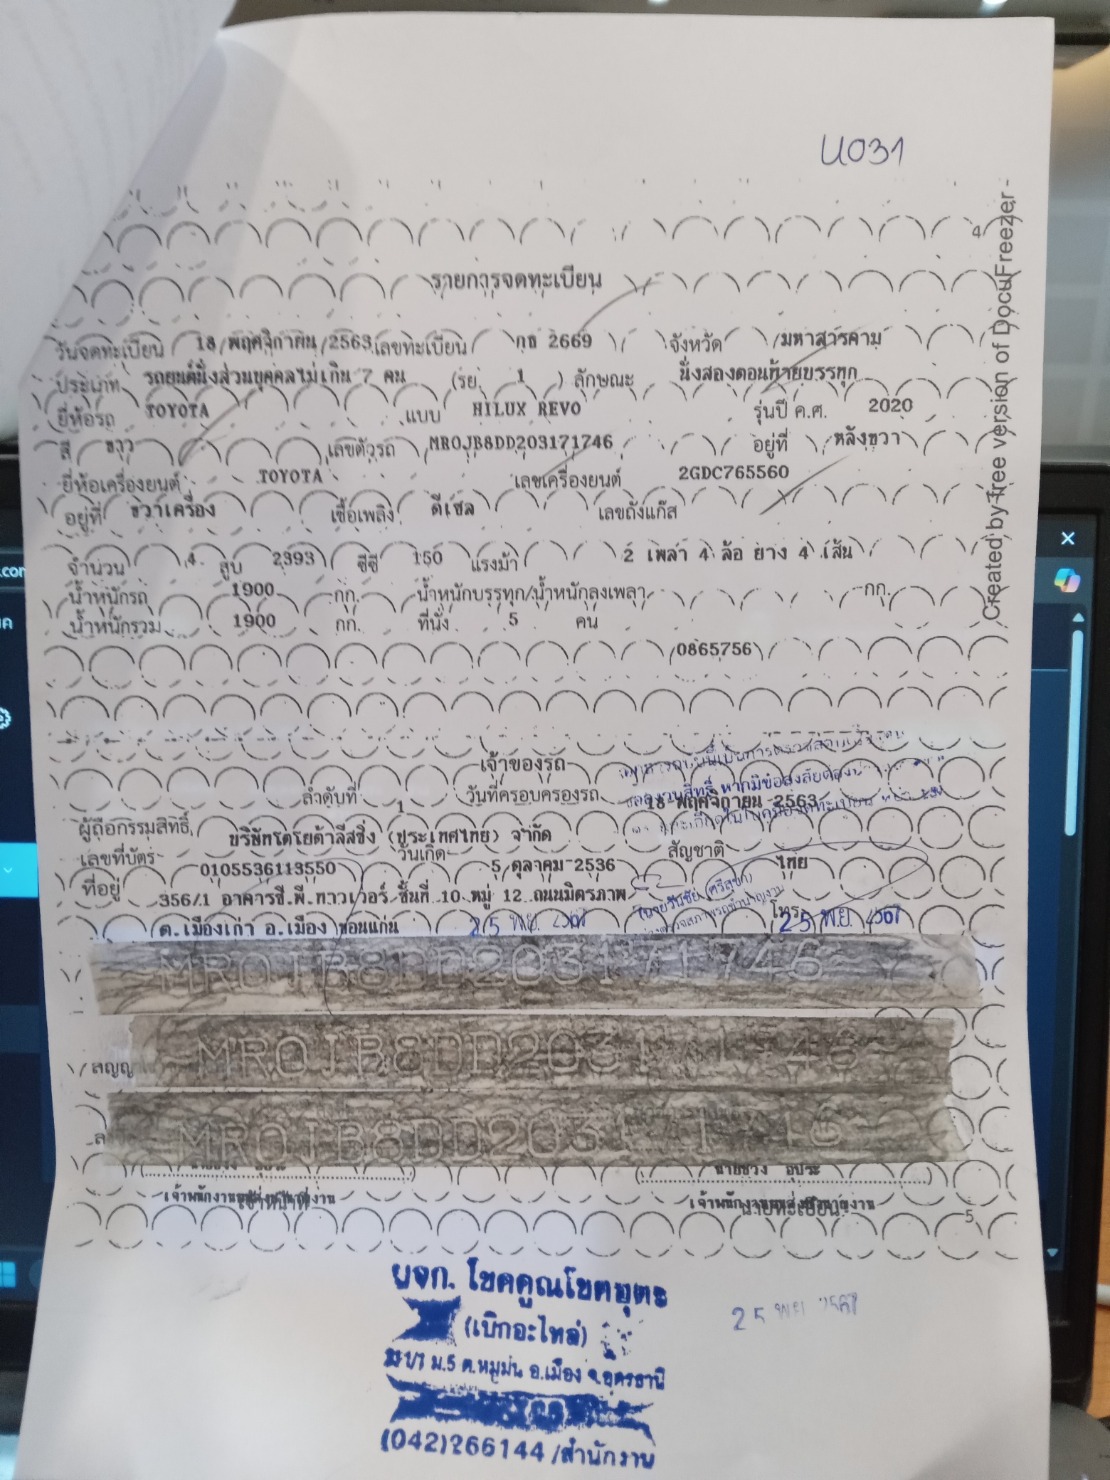 U031
4
รายการจดทะเบียน
วันจดทะเบียน 18 พฤศจิกายน 2563 เลขทะเบียน กธ 2669 จังหวัด มหาสารคาม
ประเภท รถยนต์นั่งส่วนบุคคลไม่เกิน 7 คน (รย. 1 ) ลักษณะ นั่งสองตอนท้ายบรรทุก
ยี่ห้อรถ TOYOTA แบบ HILUX REVO รุ่นปี ค.ศ. 2020
สี ขาว เลขตัวรถ MR0JB8DD203171746 อยู่ที่ หลังขวา
ยี่ห้อเครื่องยนต์ TOYOTA เลขเครื่องยนต์ 2GDC765560
อยู่ที่ ขวาเครื่อง เชื้อเพลิง ดีเซล เลขถังแก๊ส
จำนวน 4 สูบ 2393 ซีซี 150 แรงม้า 2 เพลา 4 ล้อ ยาง 4 เส้น
น้ำหนักรถ 1900 กก. น้ำหนักบรรทุก/น้ำหนักลงเพลา กก.
น้ำหนักรวม 1900 กก. ที่นั่ง 5 คน
0865756
Created by free version of DocuFreezer -
เจ้าของรถ
ลำดับที่ 1 วันที่ครอบครองรถ 18 พฤศจิกายน 2563
ผู้ถือกรรมสิทธิ์ บริษัทโตโยต้าลีสซิ่ง (ประเทศไทย) จำกัด
เลขที่บัตร 0105536113550 วันเกิด 5 ตุลาคม 2536 สัญชาติ ไทย
ที่อยู่ 356/1 อาคารซี.พี.ทาวเวอร์ ชั้นที่ 10 หมู่ 12 ถนนมิตรภาพ
ต.เมืองเก่า อ.เมือง ขอนแก่น โทร.
25 พ.ย. 2567 25 พ.ย. 2567
MR0JB8DD203171746
สัญญ MR0JB8DD203171746
MR0JB8DD203171746
นายช่วง อุประ
เจ้าพนักงานขนส่งชำนาญงาน เจ้าพนักงานขนส่งชำนาญงาน
เจ้าหน้าที่ นายทะเบียน
5
ผจก. โชคคูณโชคอุดร
(เบิกอะไหล่)
ม.5 ต.หมูม่น อ.เมือง จ.อุดรธานี
(042)266144 /สำนักงาน
25 พย 2567